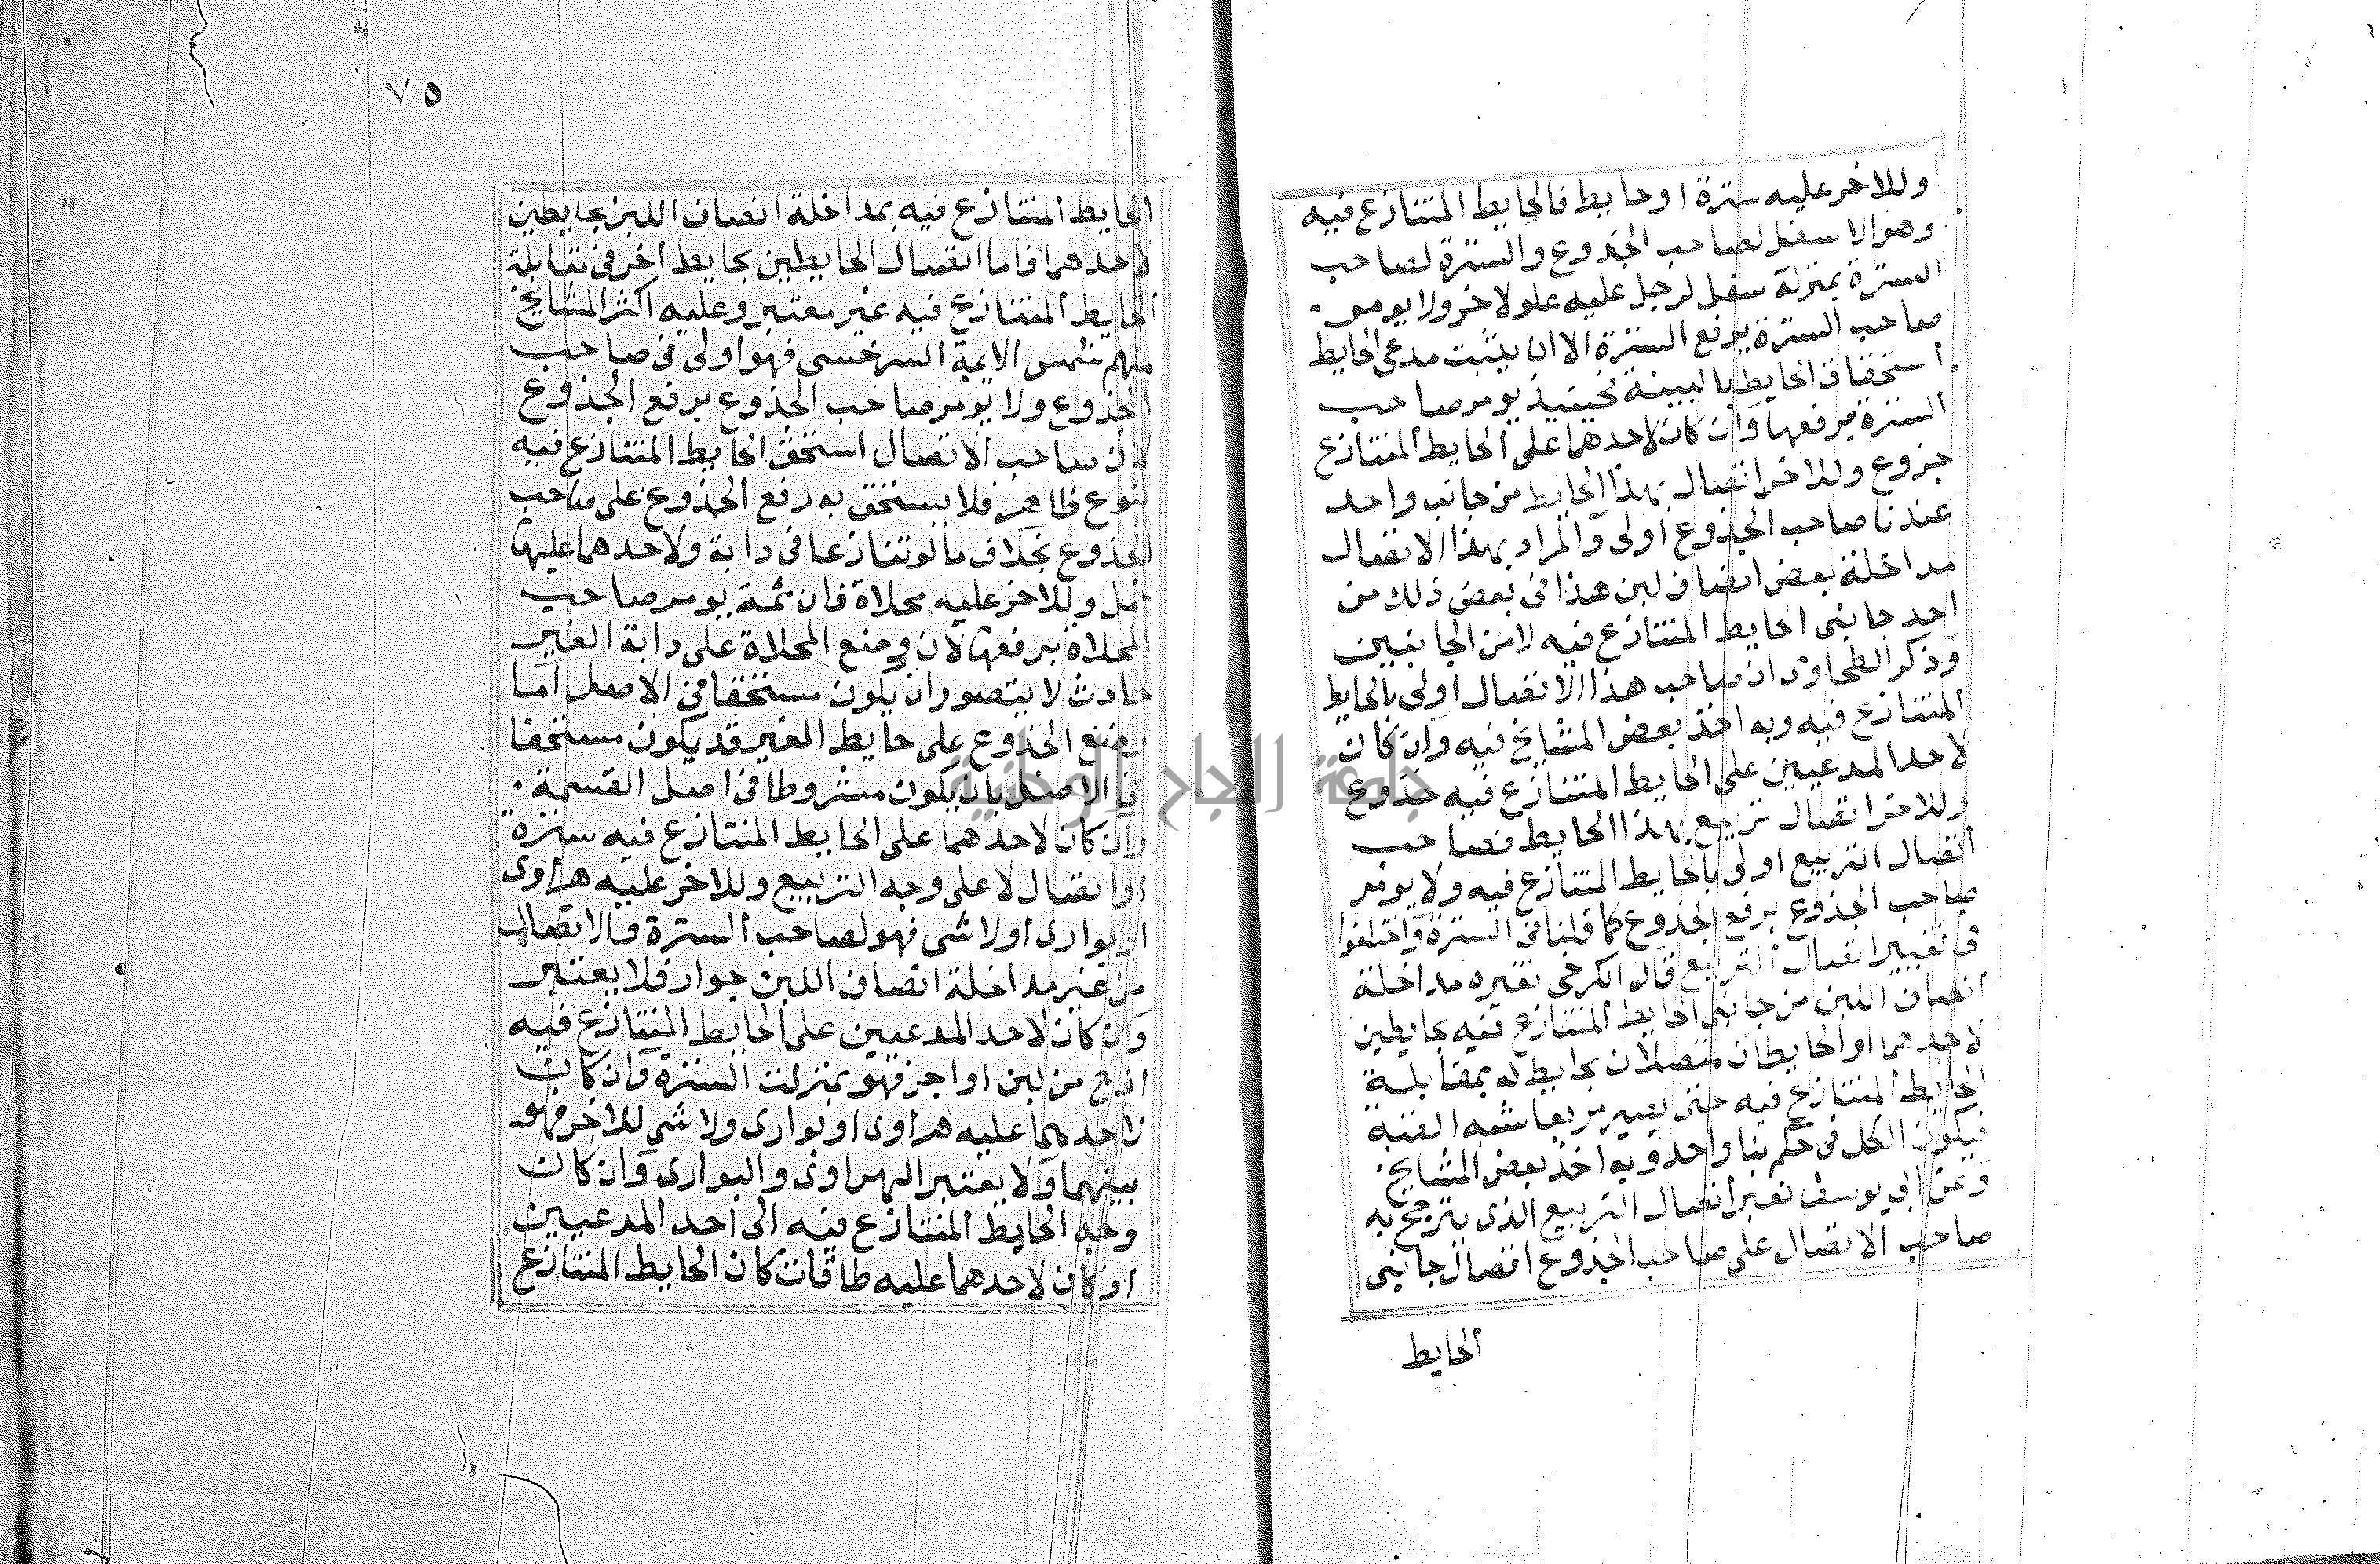 وللاخر عليه سترة او حايط فالحايط المتنازع فيه
وهو الاسفل لصاحب الجذوع والسترة لصاحب
السترة بمنزلة سفل لرجل عليه علو لاخر ولا يومر
صاحب السترة برفع السترة الا ان يثبت مدعى الحايط
استحقاق الحايط بالبينة فحينيذ يومر صاحب
السترة برفعها وان كان لاحدهما على الحايط المتنازع
جزوع وللاخر اتصال بهذا الحايط من جانب واحد
عندنا صاحب الجذوع اولى والمراد بهذا الاتصال
مداخلة بعض انصاف لبن هذا فى بعض ذلك من
احد جانبى الحايط المتنازع فيه لا من الجانبين
وذكر الطحاوى ان صاحب هذا الاتصال اولى بالحايط
المتنازع فيه وبه اخذ بعض المشايخ فيه وان كان
لاحد المدعيين على الحايط المتنازع فيه جذوع
وللاخر اتصال تربيع بهذا الحايط فصاحب
اتصال التربيع اولى بالحايط المتنازع فيه ولا يومر
صاحب الجذوع برفع الجذوع كما قلنا فى السترة واختلفوا
فى تفسير اتصال التربيع قال الكرخى تفسيره مداخلة
انصاف اللبن من جانبى الحايط المتنازع فيه بحايطين
لاحدهما او الحايطان متصلان بحايط له بمقابلة
الحايط المتنازع فيه حتى يصير مربعا شبه القبة
فيكون الكل فى حكم بنا واحد وبه اخذ بعض المشايخ
وعن ابى يوسف تفسير اتصال التربيع الذى يترجح به
صاحب الاتصال على صاحب الجذوع اتصال جانبى
الحايط
٧٥
الحايط المتنازع فيه بمداخلة انصاف اللبن بحايطين
لاحدهما فاما اتصال الحايطين بحايط اخر فى مقابلة
الحايط المتنازع فيه غير معتبر وعليه اكثر المشايخ
منهم شمس الايمة السرخسى فهو اولى فى صاحب
الجذوع ولا يومر صاحب الجذوع برفع الجذوع
لان صاحب الاتصال استحق الحايط المتنازع فيه
بنوع ظاهر فلا يستحق به رفع الجذوع على صاحب
الجذوع بخلاف ما لو تنازعا فى دابة ولاحدهما عليها
حمل وللاخر عليه مخلاة فان ثمة يومر صاحب
المخلاة برفعها لان وضع المخلاة على دابة الغير
حادث لا يتصور ان يكون مستحقا فى الاصل اما
وضع الجذوع على حايط الغير قد يكون مستحقا
فى الاصل بان يكون مشروطا فى اصل القسمة
وان كان لاحدهما على الحايط المتنازع فيه سترة
او اتصال لا على وجه التربيع وللاخر عليه هراوى
او بوارى او لا شى فهو لصاحب السترة والاتصال
من غير مداخلة انصاف اللبن جوار فلا يعتبر
وان كان لاحد المدعيين على الحايط المتنازع فيه
ازج من لبن او اجر فهو بمنزلت السترة وان كان
لاحدهما عليه هراوى او بوارى ولا شى للاخر فهو
بينهما ولا يعتبر الهراوى والبوارى وان كان
وجه الحايط المتنازع فيه الى احد المدعيين
او كان لاحدهما عليه طاقات كان الحايط المتنازع
جامعة النجاح الوطنية